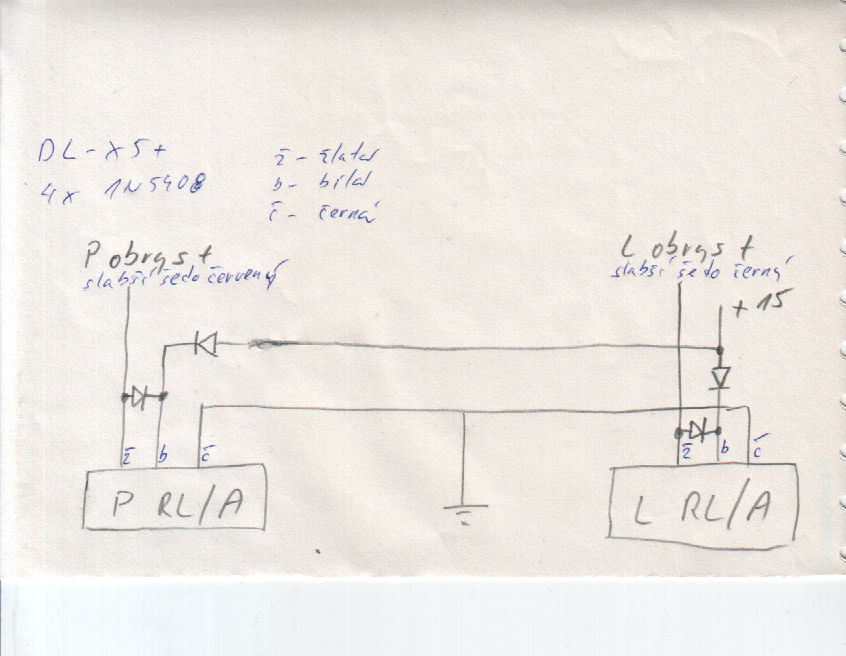 DL-X5+
4x 1N5408
ž - žlutá
b - bílá
č - černá
P obrys +
slabší šedo červený
L obrys +
slabší šedo černý
+15
ž b č
ž b č
P RL/A
L RL/A